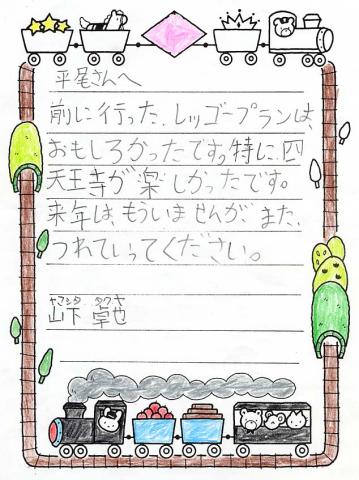 平尾さんへ
前に行った、レッゴープランは、
おもしろかったです。特に、四
天王寺が楽しかったです。
来年は、もういませんが、また、
つれていってください。
ヤマシタ タクヤ
山下 卓也